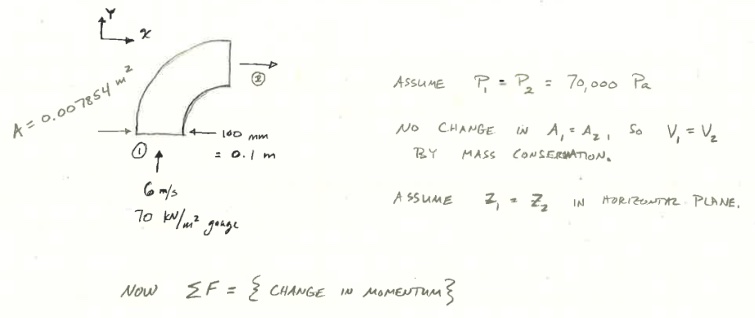 Y
x
A = 0.007854 m²
②
100 mm
= 0.1 m
①
6 m/s
70 kN/m² gauge
ASSUME P₁ = P₂ = 70,000 Pa
NO CHANGE IN A₁ = A₂, SO V₁ = V₂
BY MASS CONSERVATION.
ASSUME Z₁ = Z₂ IN HORIZONTAL PLANE.
NOW ΣF = { CHANGE IN MOMENTUM }